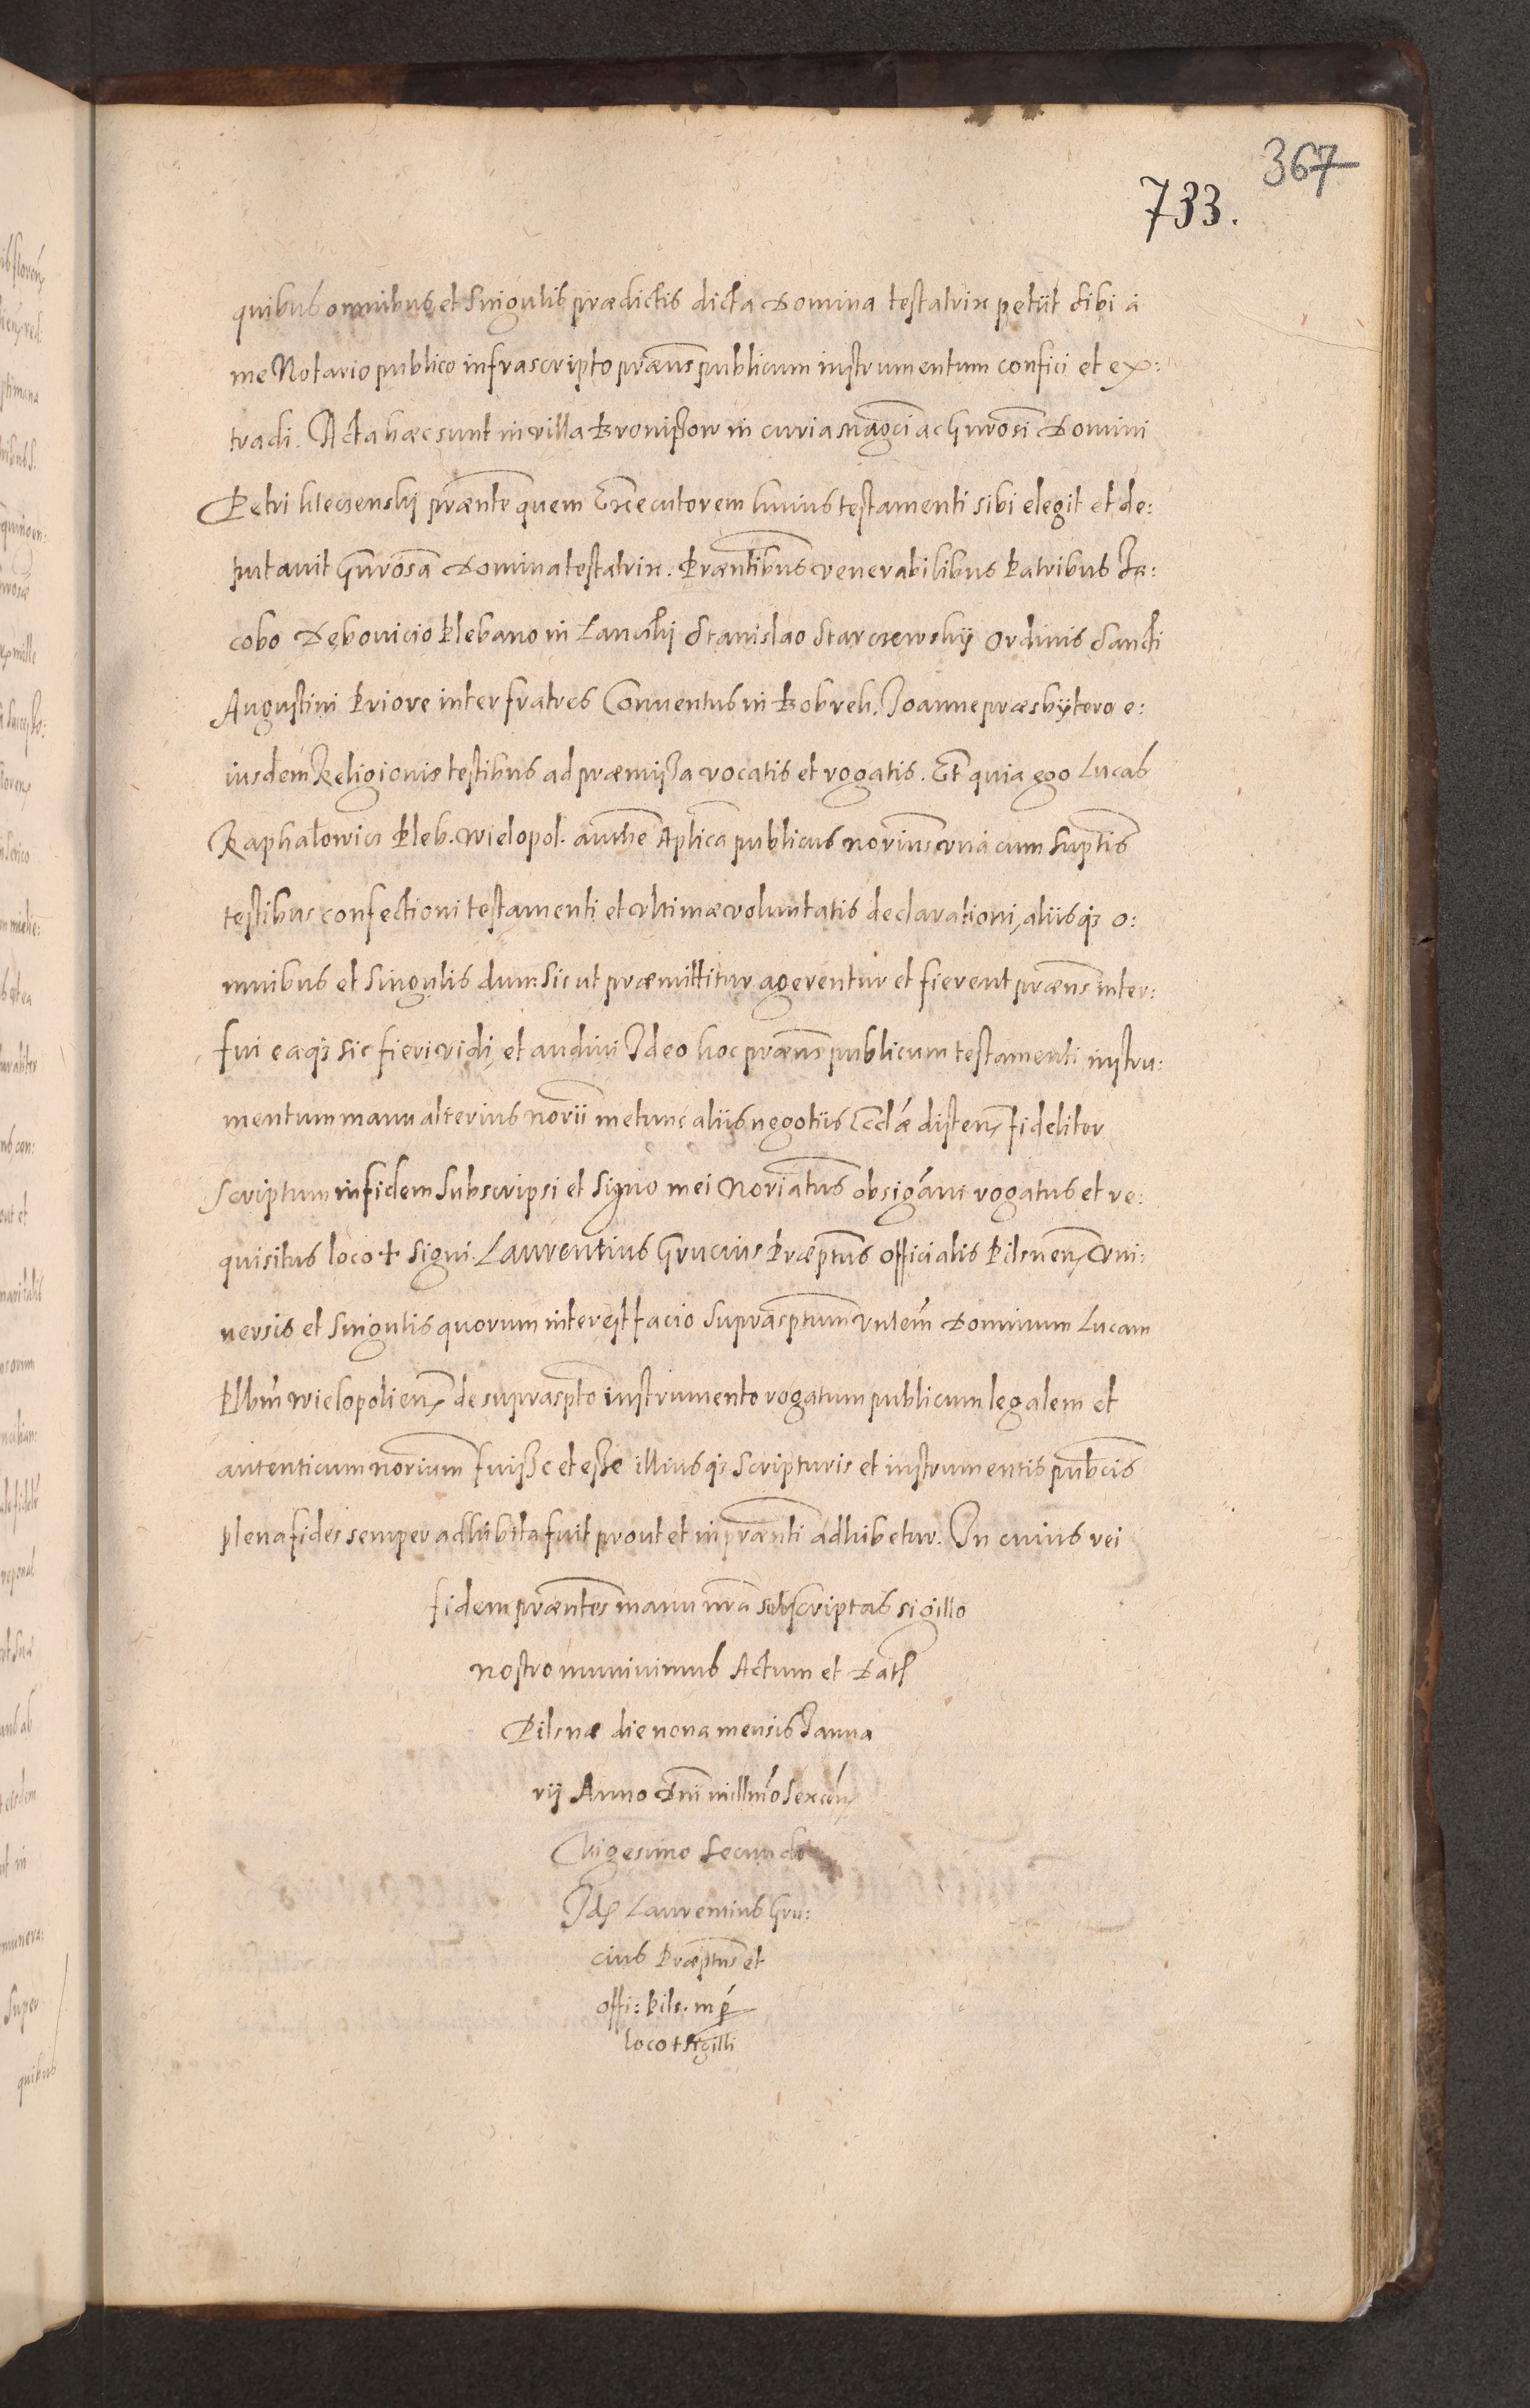 367
733.
quibus omnibus et singulis prædictis dicta Domina testatrix petiit sibi à
me Notario publico infrascripto præns publicum instrumentum confici et ex:
tradi. Acta hæc sunt in villa Broniszow in curia magci ac Gnrosi Domini
Petri prænte quem Executorem huius testamenti sibi elegit et de:
putauit Gnrosa Domina testatrix. Præntibus venerabilibus Patribus Ja:
cobo Dębouicio Plebano in Stanislao Starczewskÿ Ordinis Sancti
Augustini Priore inter fratres Conuentus in Bobrek. Joanne præsbÿtero e:
iusdem Religionis testibus ad præmissa vocatis et rogatis. Et quia ego Lucas
Raphałowicz Pleb. Wielopol. authe Aplica publicus norius vnà cum suptis
testibus confectioni testamenti et vltimæ voluntatis declarationi, aliisq3 o:
mnibus et singulis dum sic ut præmittitur agerentur et fierent præns inter:
fui eaq3 sic fieri vidi, et audiui Ideo hoc præns publicum testamenti instru:
mentum manu alterius norii me tunc aliis negotiis Eccłæ disten, fideliter
scriptum in fidem subscripsi et signo mei Noriatus obsignaui rogatus et re:
quisitus loco + signi. Laurentius Grucius Præptus officialis Pilsnen, Vni:
uersis et singulis quorum interest facio suprasptum Dominum Lucam
Plbm Wielopolien, de suprasspto instrumento rogatum publicum legalem et
autenticum norium fuisse et esse illiusq3 scripturis et instrumentis pubcis
plena fides semper adhibita fuit prout et in prænti adhibetur. In cuius rei
fidem præntes manu nra subscriptas sigillo
nostro muniuimus Actum et Dat
Pilsnæ die nona mensis Janua
rij Anno Dni millmo sexcen,
Vigesimo Secundo
Id Laurentius Gru:
cius Præptus et
offi: Pils. mp
loco + sigilli